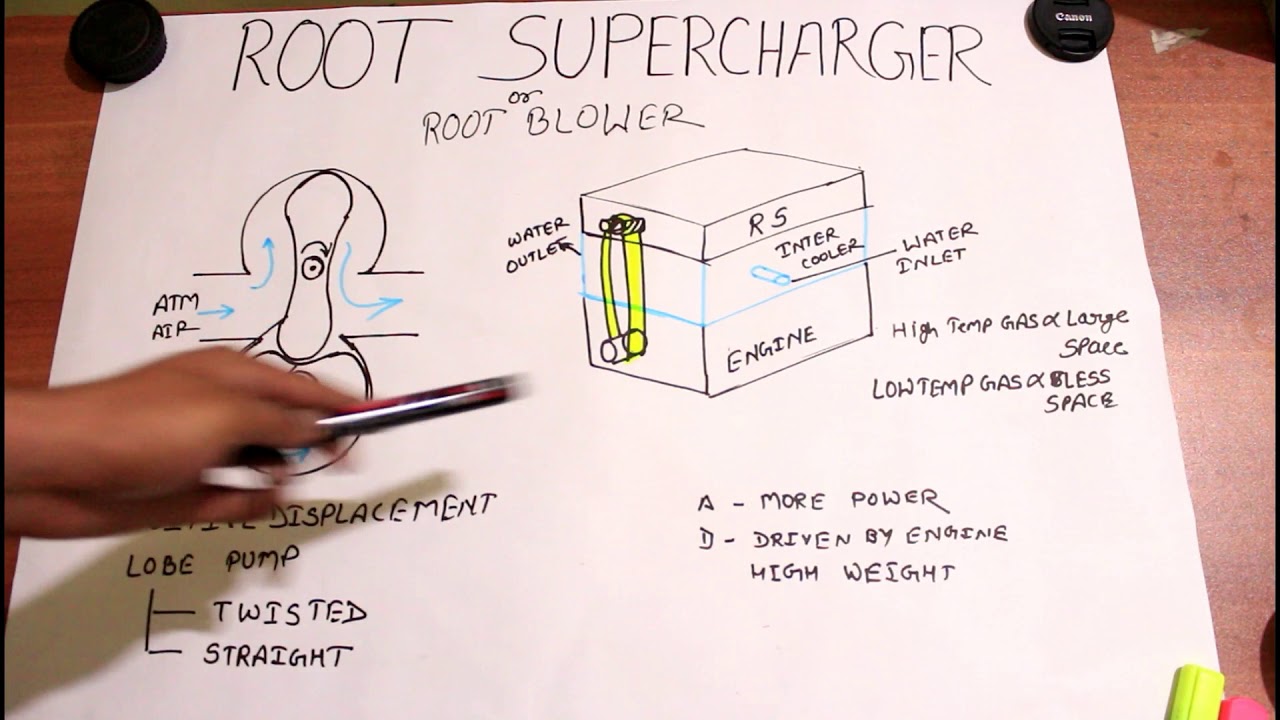 Canon
ROOT SUPERCHARGER
or
ROOT BLOWER
WATER
OUTLET
RS
INTER
COOLER
WATER
INLET
ENGINE
ATM
AIR
High Temp GAS ∝ Large
Space
LOW TEMP GAS ∝ LESS
SPACE
DISPLACEMENT
LOBE PUMP
TWISTED
STRAIGHT
A - MORE POWER
D - DRIVEN BY ENGINE
HIGH WEIGHT